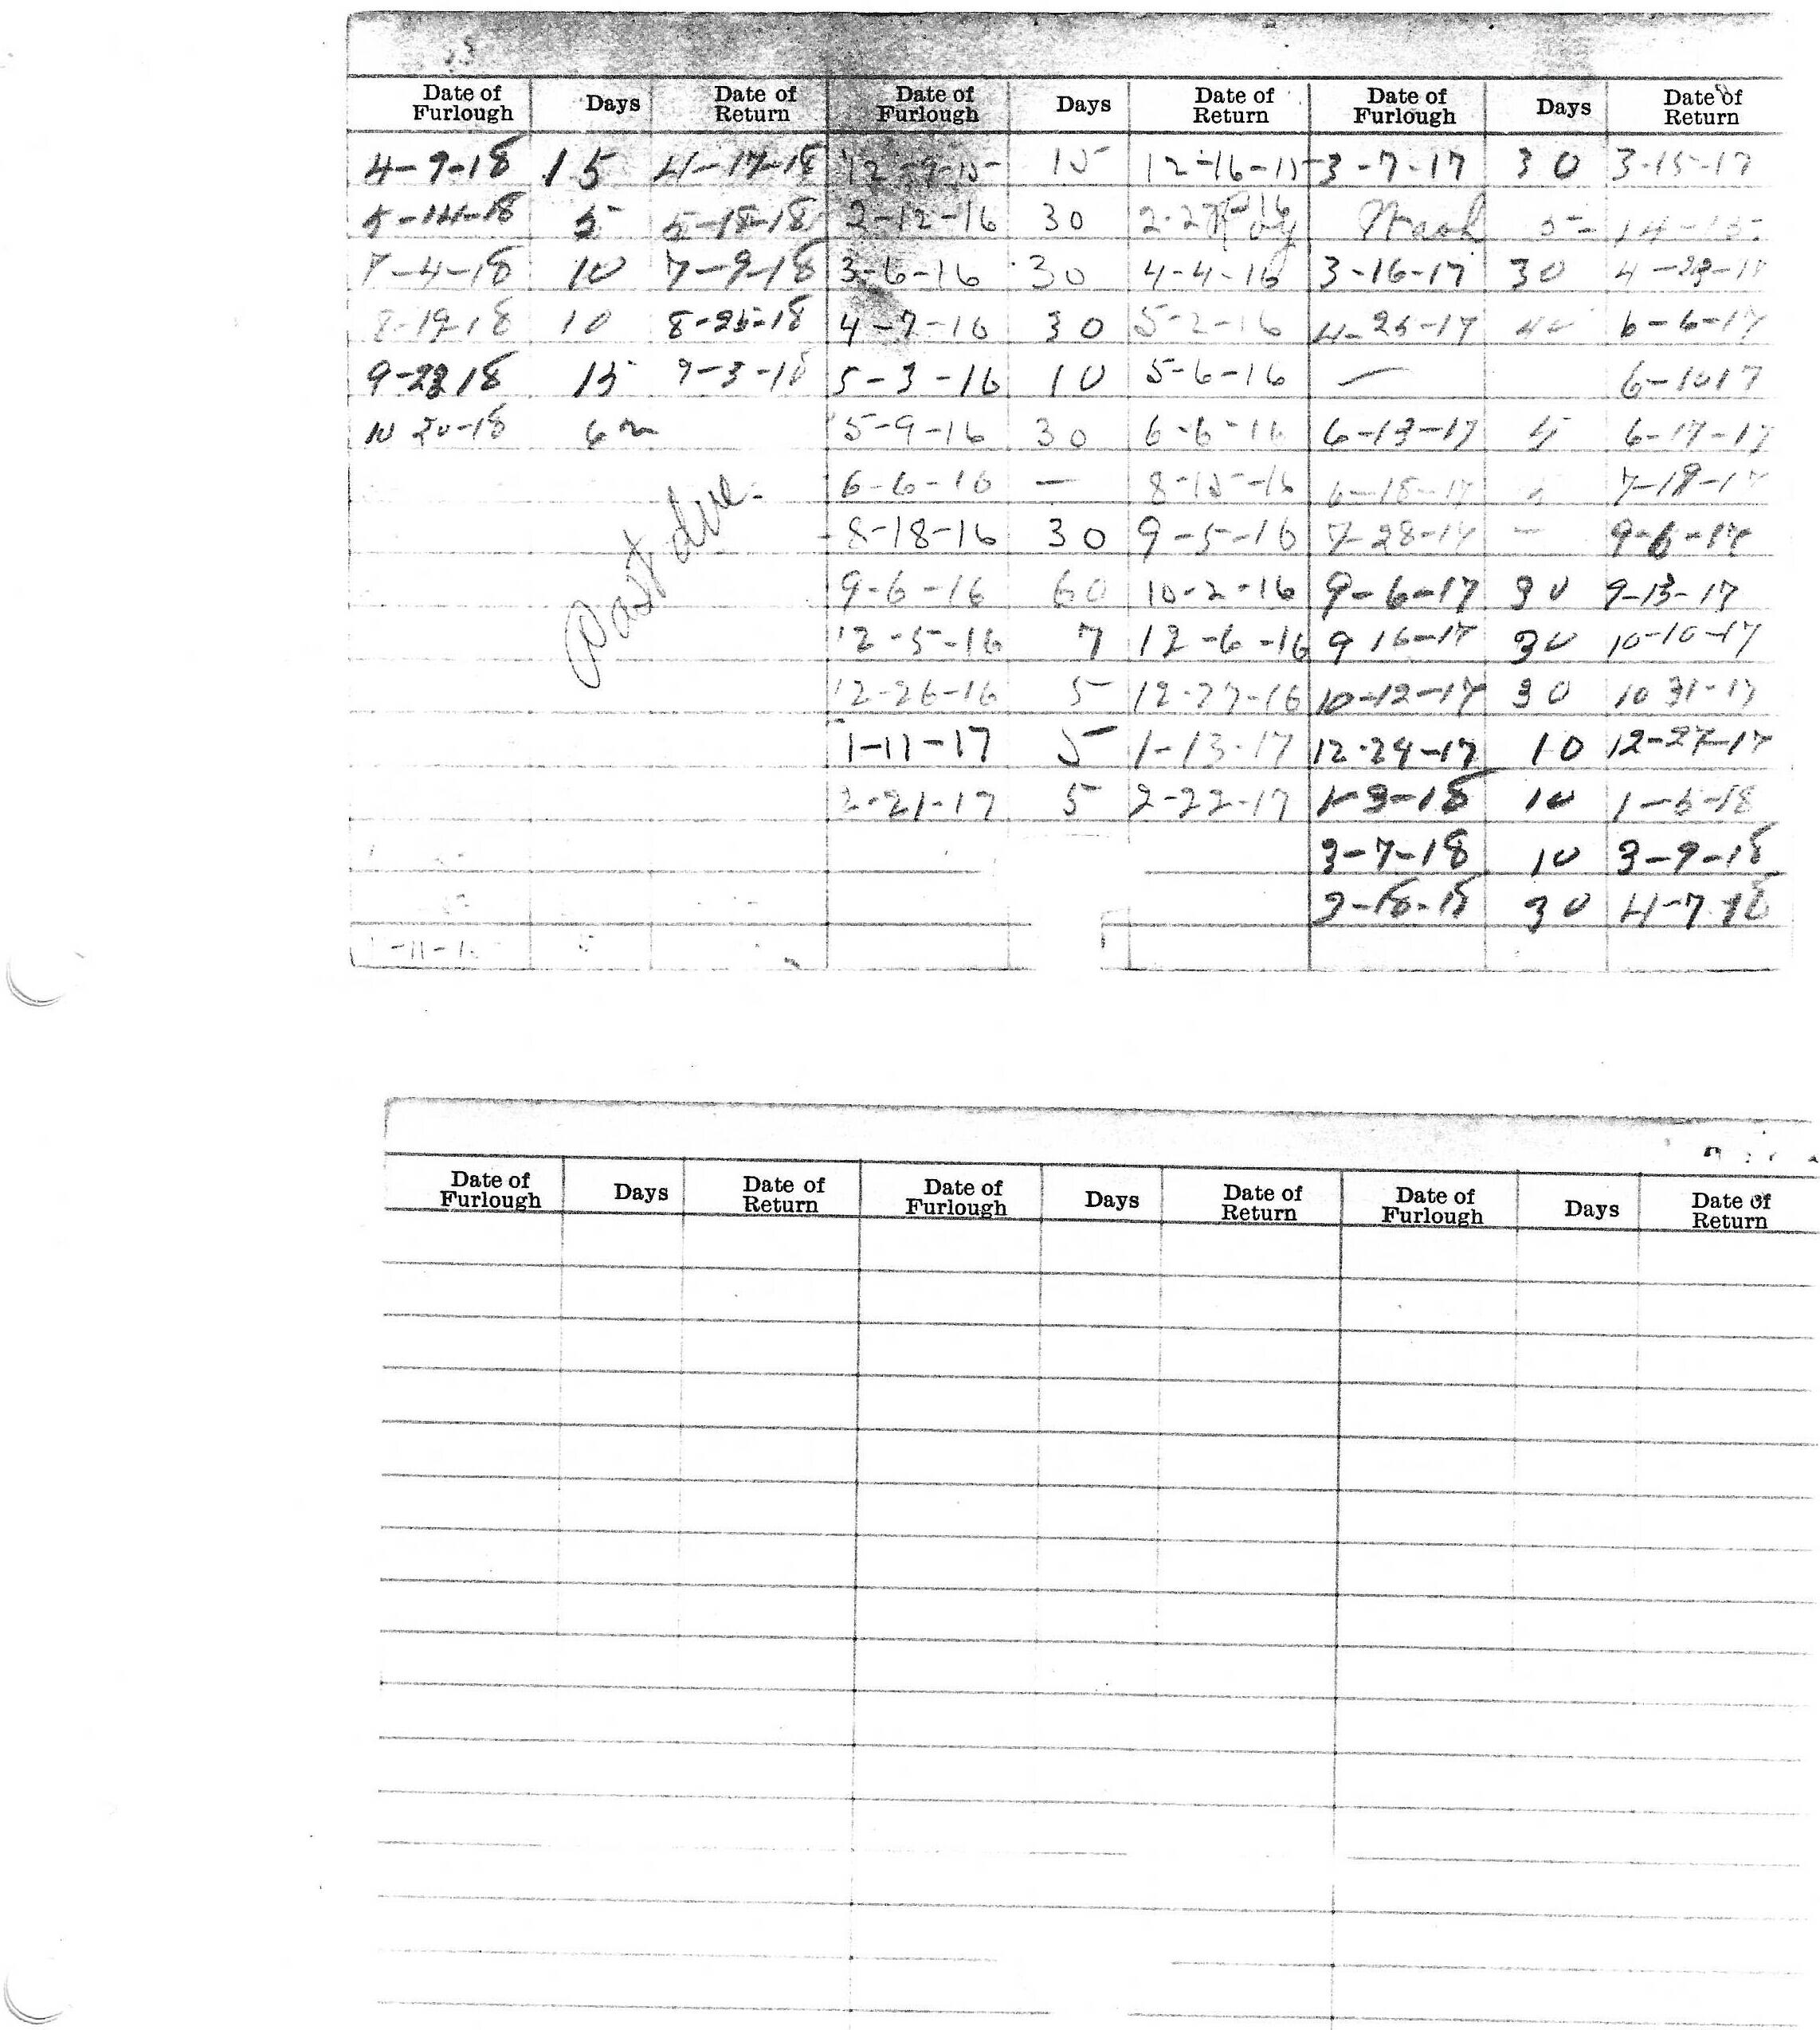 Date of Furlough Days Date of Return Date of Furlough Days Date of Return Date of Furlough Days Date of Return
4-9-18 15 4-17-18 12-9-15 15 12-16-15 3-7-17 30 3-15-17
5-14-18 5 5-18-18 2-12-16 30
7-4-18 10 7-9-18 3-6-16 30 4-4-16 3-16-17 30
8-19-18 10 8-25-18 4-7-16 30 5-2-16 4-25-17 6-6-17
15 5-3-16 10 5-6-16 — 6-1017
10 20-18 5-9-16 30 6-6-16 6-13-17 6-17-17
6-6-16 — 8-15-16
Past due.
8-18-16 30 9-5-16 7-28-17 — 9-6-17
9-6-16 60 10-2-16 9-6-17 30 9-13-17
12-5-16 7 12-6-16 9 16-17 30 10-10-17
12-26-16 5 12-27-16 10-12-17 30 10 31-17
1-11-17 5 1-13-17 12-24-17 10 12-27-17
2-21-17 5 2-22-17 1-3-18 10 1-5-18
3-7-18 10 3-9-18
3-18-18 30 4-7-18
Date of Furlough Days Date of Return Date of Furlough Days Date of Return Date of Furlough Days Date of Return